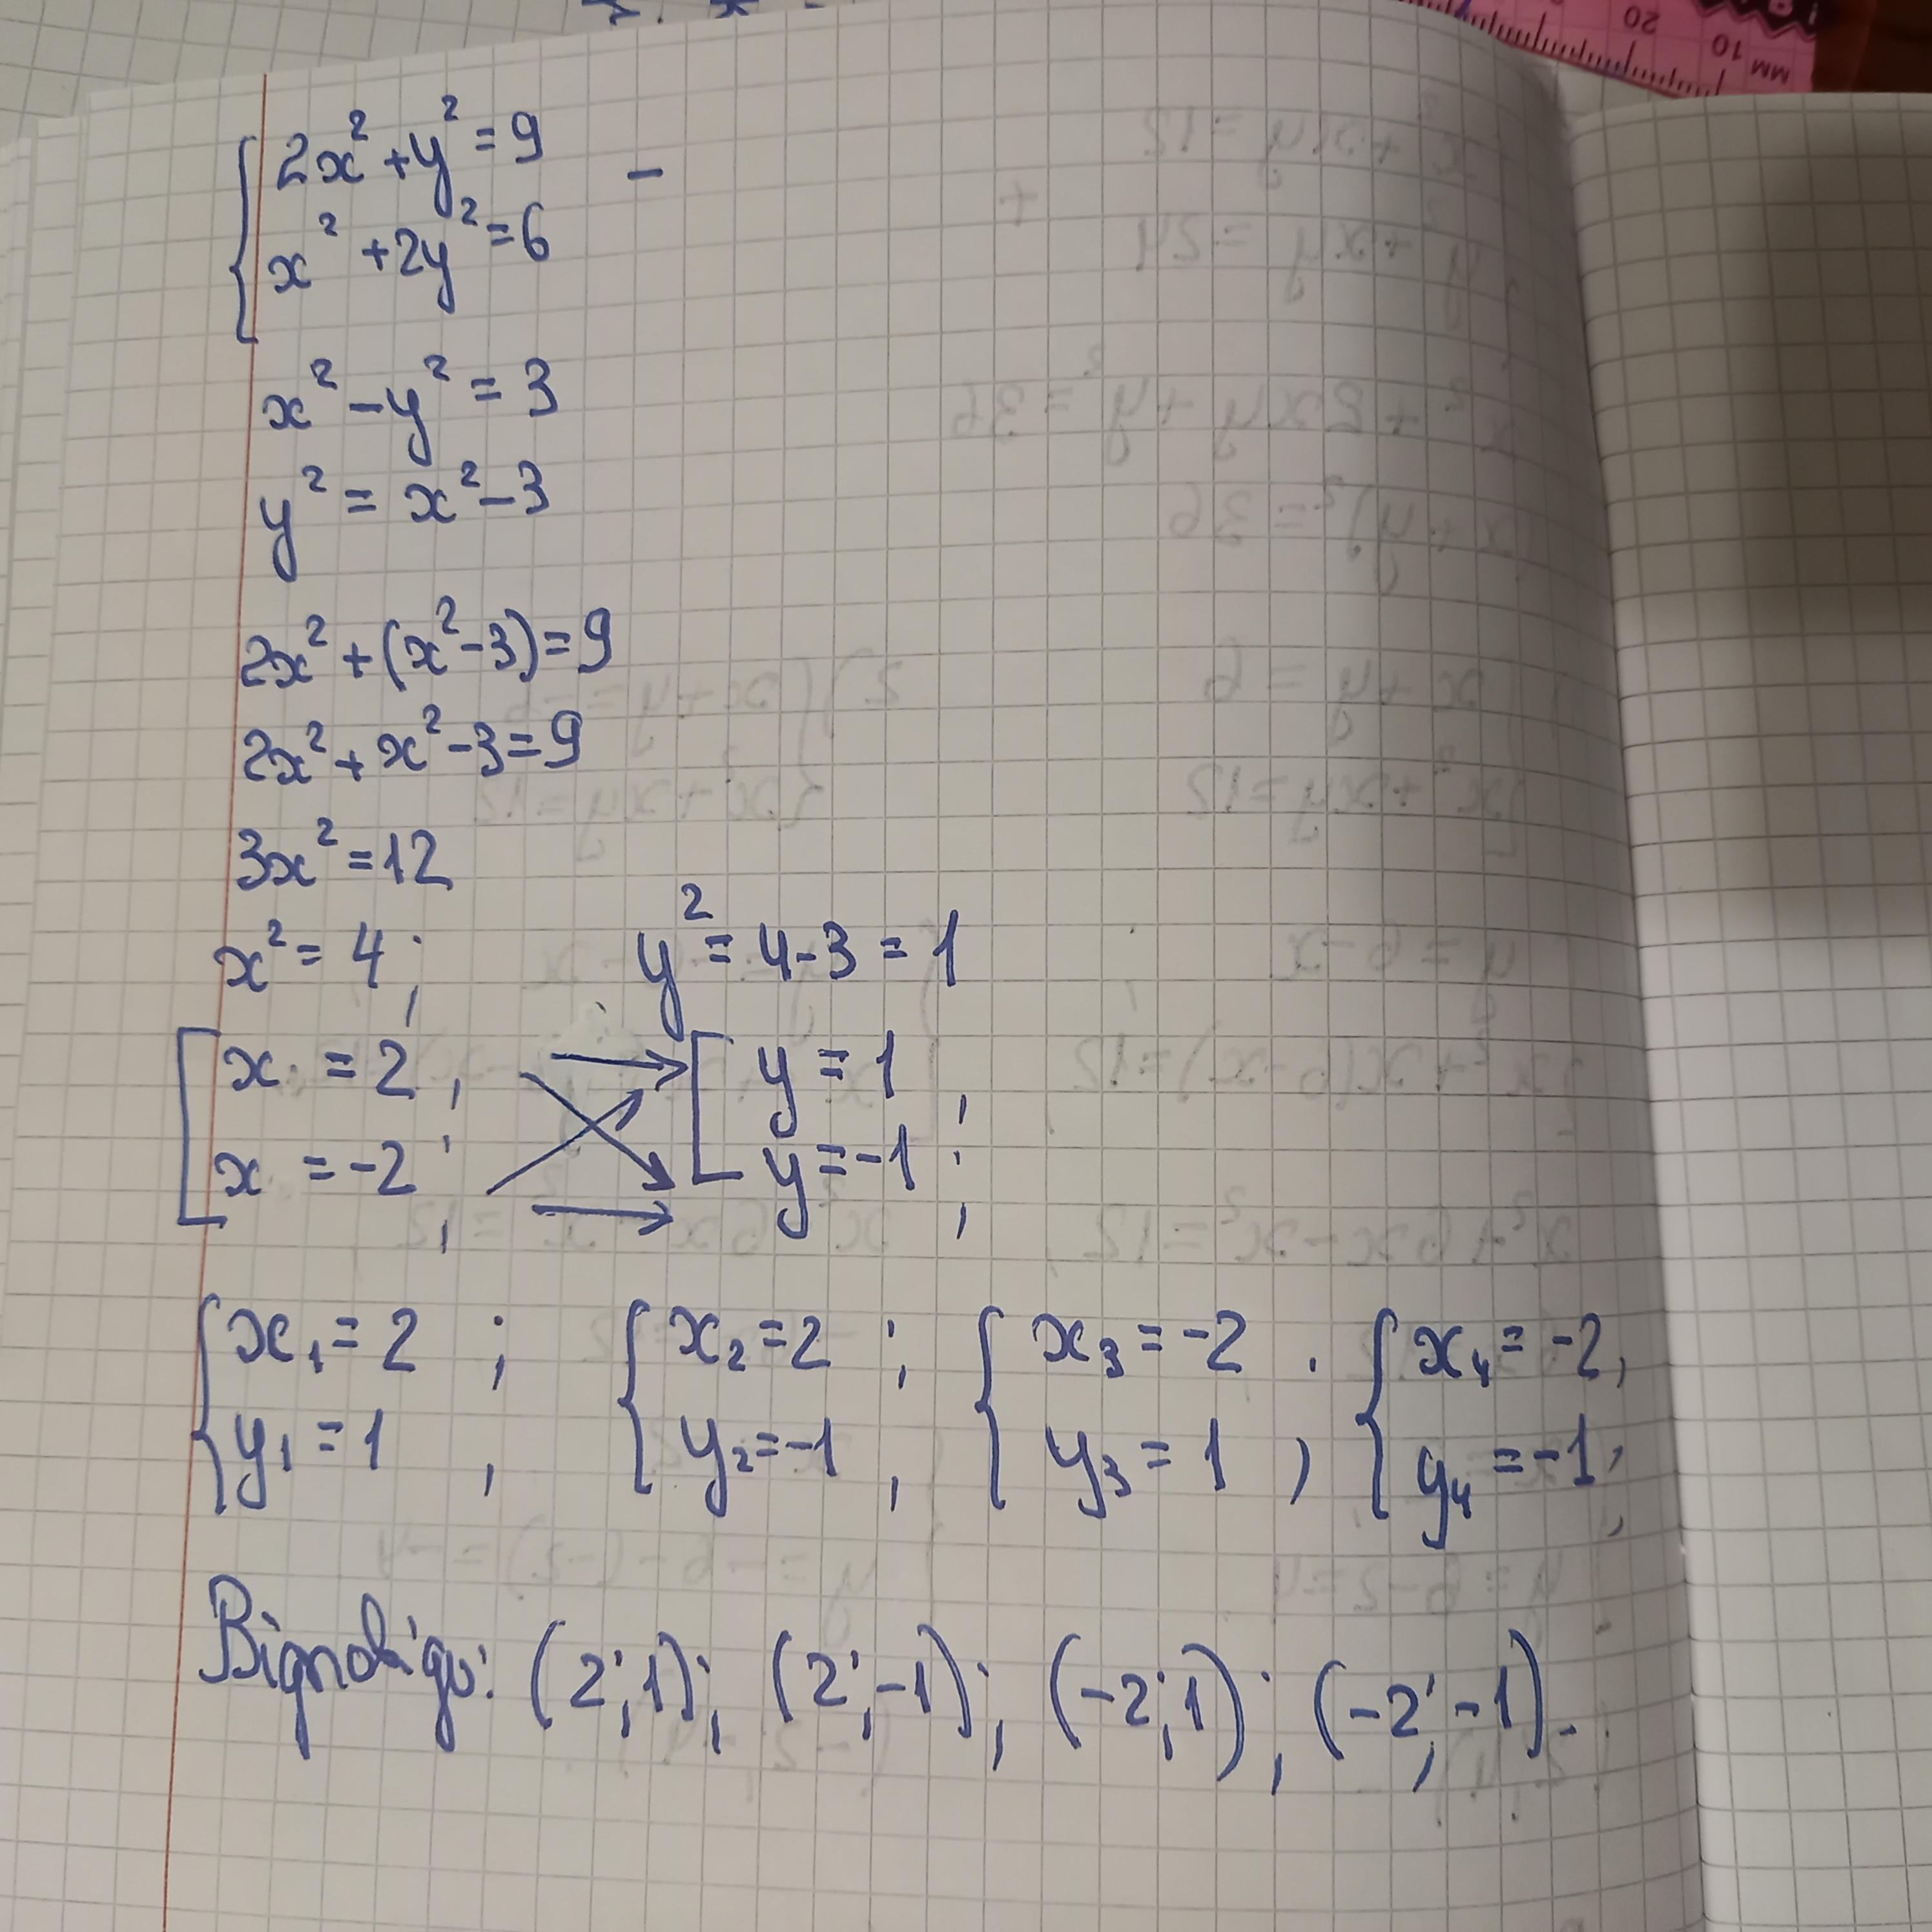 2x² + y² = 9 –
x² + 2y² = 6
x² – y² = 3
y² = x² – 3
2x² + (x² – 3) = 9
2x² + x² – 3 = 9
3x² = 12
x² = 4; y² = 4 – 3 = 1
x = 2; y = 1;
x = –2; y = –1;
x₁ = 2; x₂ = 2; x₃ = –2; x₄ = –2;
y₁ = 1 y₂ = –1 y₃ = 1 y₄ = –1;
Відповідь: (2; 1); (2; –1); (–2; 1); (–2; –1).
20 10 мм